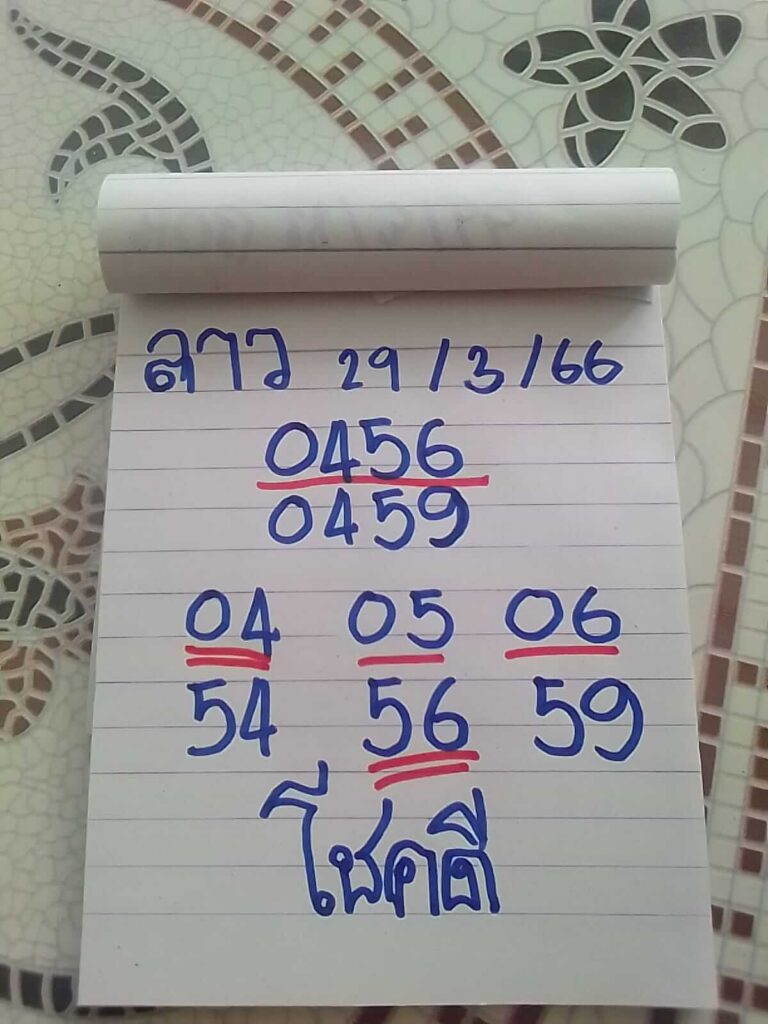 ลาว 29/3/66
0456
0459
04 05 06
54 56 59
โชคดี